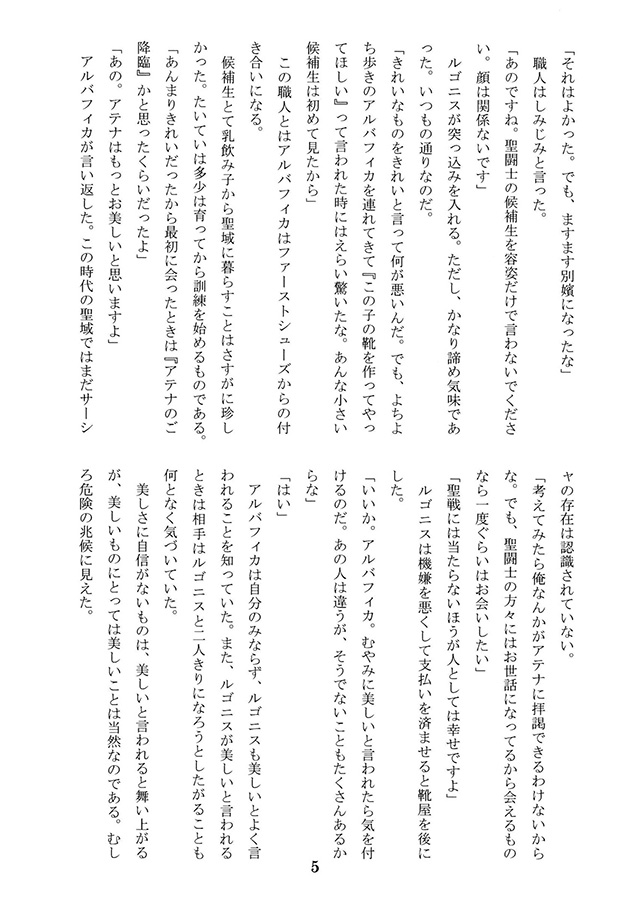 「それはよかった。でも、ますます別嬪になったな」
職人はしみじみと言った。
「あのですね。聖闘士の候補生を容姿だけで言わないでくださ
い。顔は関係ないです」
ルゴニスが突っ込みを入れる。ただし、かなり諦め気味であ
った。いつもの通りなのだ。
「きれいなものをきれいと言って何が悪いんだ。でも、よちよ
ち歩きのアルバフィカを連れてきて『この子の靴を作ってやっ
てほしい』って言われた時にはえらい驚いたな。あんな小さい
候補生は初めて見たから」
この職人とはアルバフィカはファーストシューズからの付
き合いになる。
候補生とて乳飲み子から聖域に暮らすことはさすがに珍し
かった。たいていは多少は育ってから訓練を始めるものである。
「あんまりきれいだったから最初に会ったときは『アテナのご
降臨』かと思ったくらいだったよ」
「あの。アテナはもっとお美しいと思いますよ」
アルバフィカが言い返した。この時代の聖域ではまだサーシ
ャの存在は認識されていない。
「考えてみたら俺なんかがアテナに拝謁できるわけないから
な。でも、聖闘士の方々にはお世話になってるから会えるもの
なら一度ぐらいはお会いしたい」
「聖戦には当たらないほうが人としては幸せですよ」
ルゴニスは機嫌を悪くして支払いを済ませると靴屋を後に
した。
「いいか。アルバフィカ。むやみに美しいと言われたら気を付
けるのだ。あの人は違うが、そうでないこともたくさんあるか
らな」
「はい」
アルバフィカは自分のみならず、ルゴニスも美しいとよく言
われることを知っていた。また、ルゴニスが美しいと言われる
ときは相手はルゴニスと二人きりになろうとしたがることも
何となく気づいていた。
美しさに自信がないものは、美しいと言われると舞い上がる
が、美しいものにとっては美しいことは当然なのである。むし
ろ危険の兆候に見えた。
5